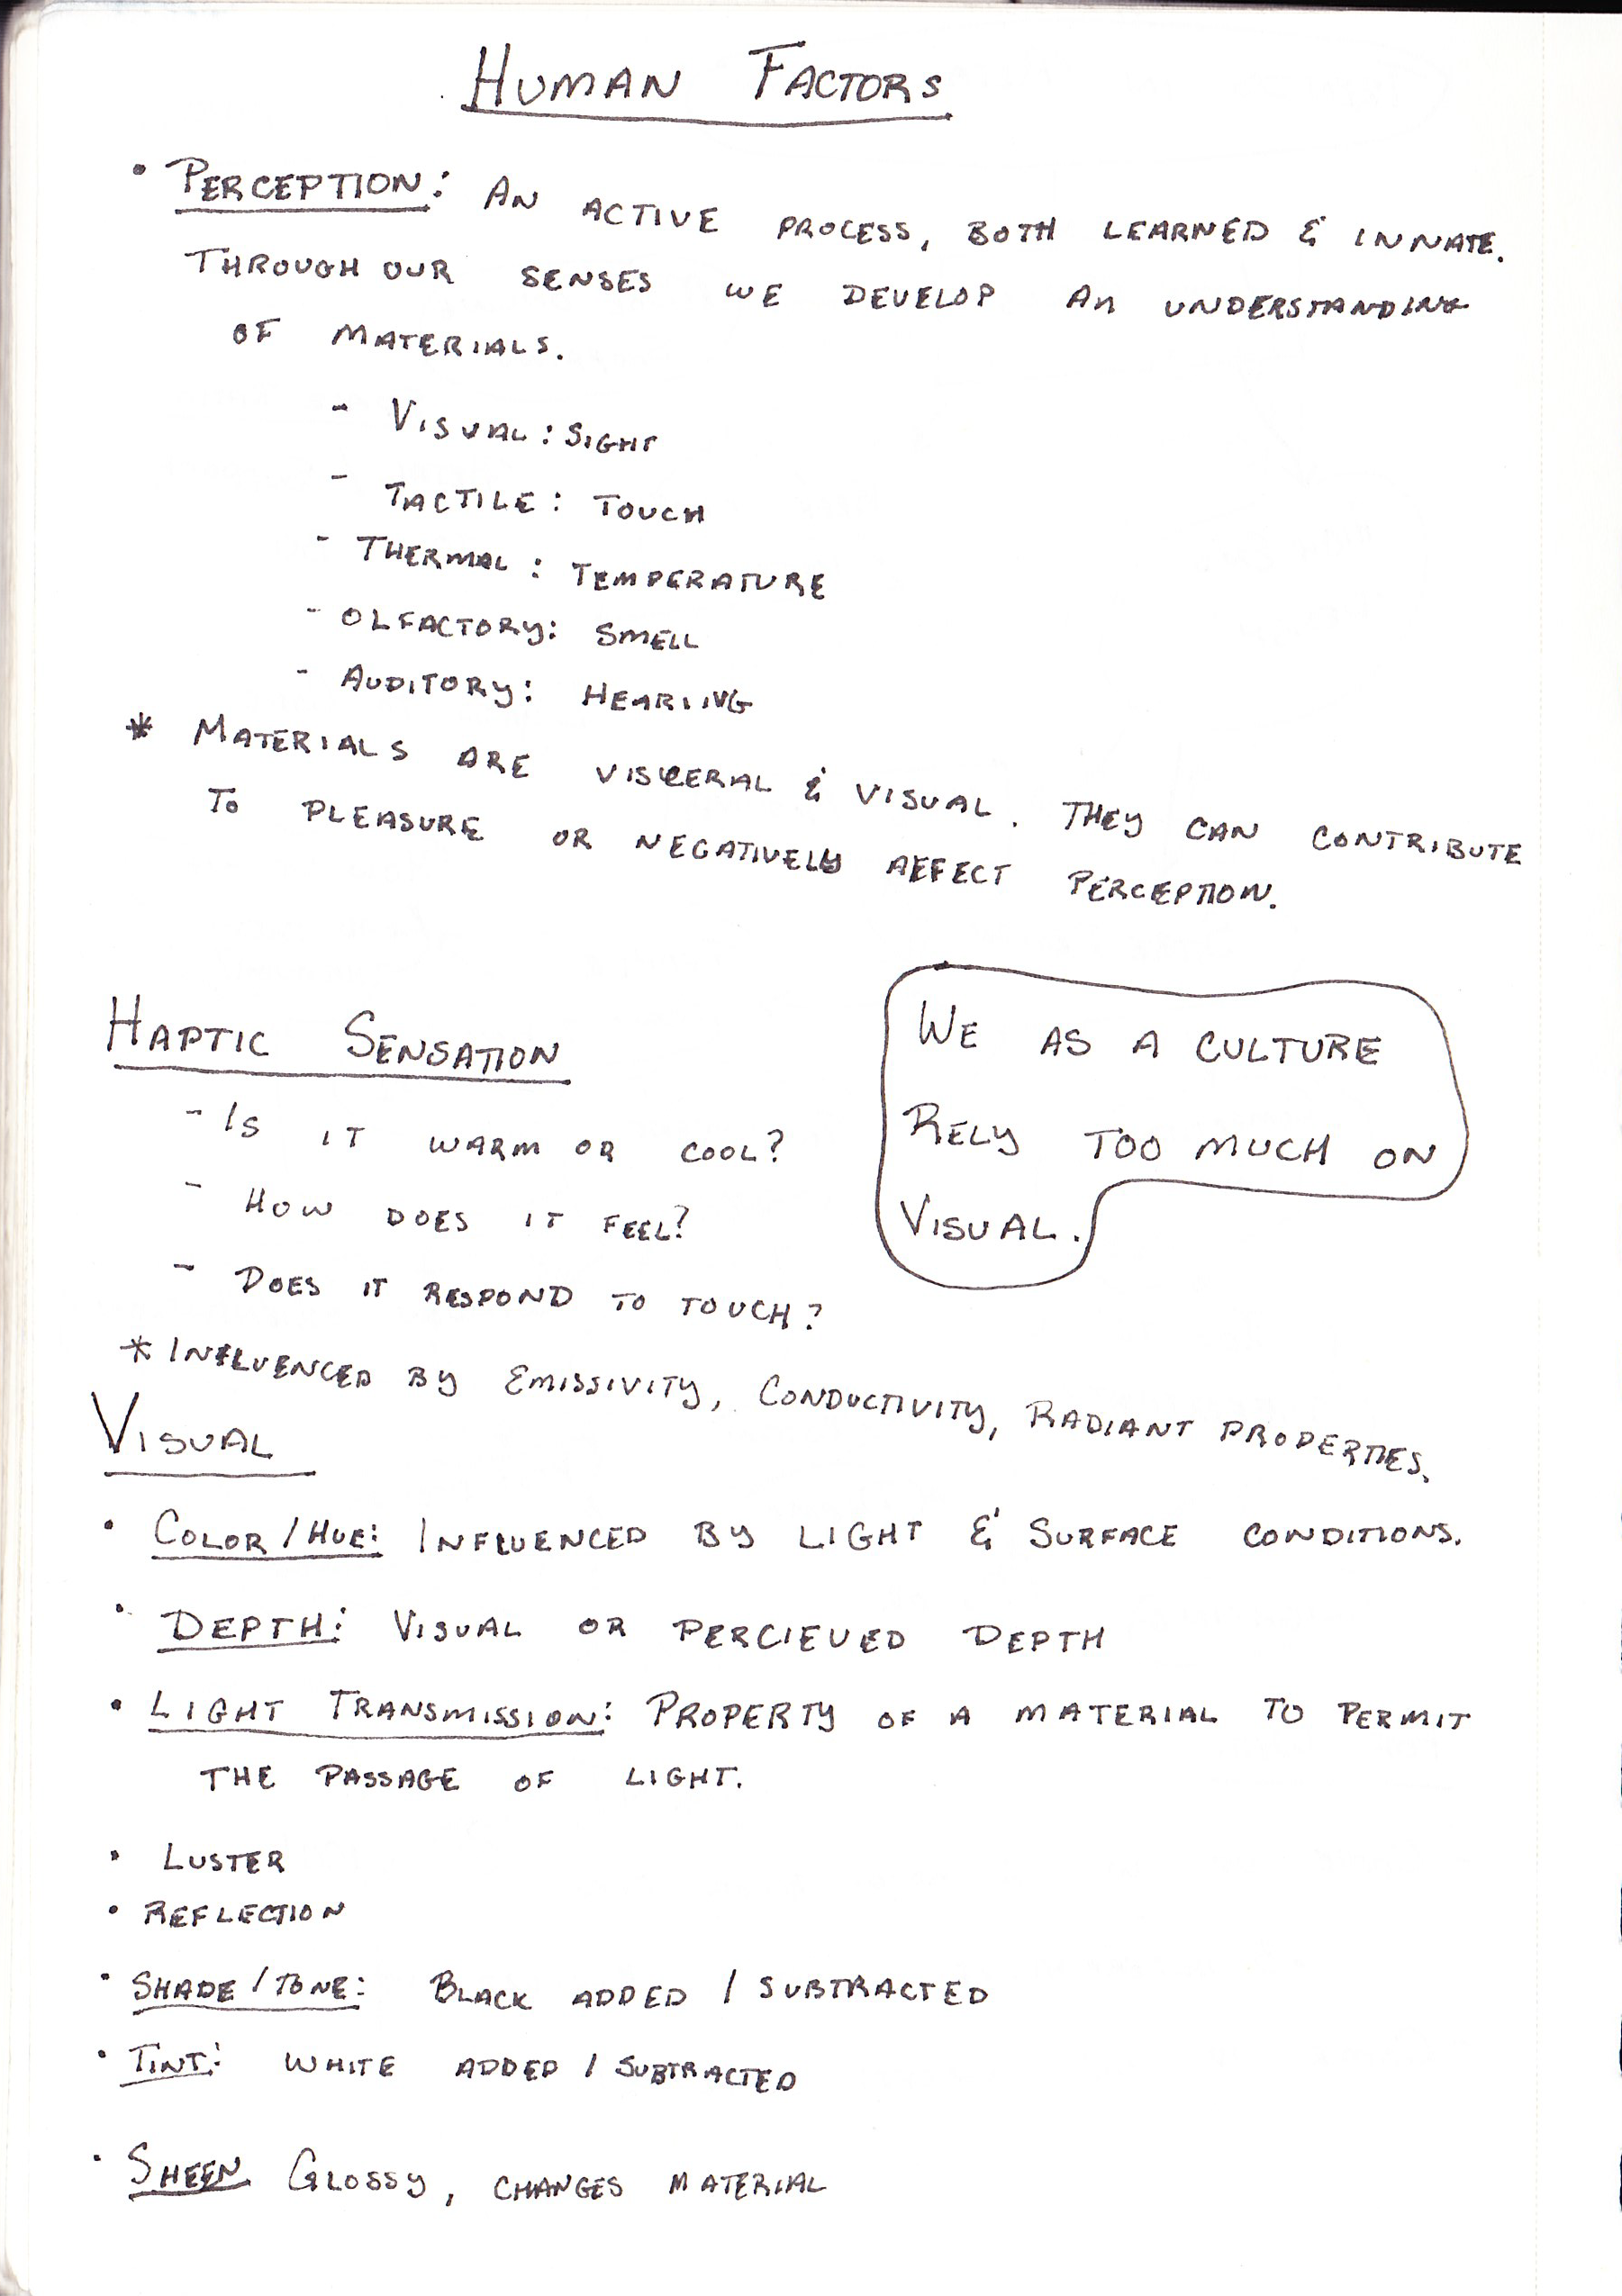 HUMAN FACTORS
• PERCEPTION: AN ACTIVE PROCESS, BOTH LEARNED & INNATE.
THROUGH OUR SENSES WE DEVELOP AN UNDERSTANDING
OF MATERIALS.
- VISUAL: SIGHT
- TACTILE: TOUCH
- THERMAL: TEMPERATURE
- OLFACTORY: SMELL
- AUDITORY: HEARING
* MATERIALS ARE VISCERAL & VISUAL. THEY CAN CONTRIBUTE
TO PLEASURE OR NEGATIVELY AFFECT PERCEPTION.
HAPTIC SENSATION
- IS IT WARM OR COOL?
- HOW DOES IT FEEL?
- DOES IT RESPOND TO TOUCH?
* INFLUENCED BY EMISSIVITY, CONDUCTIVITY, RADIANT PROPERTIES.
WE AS A CULTURE
RELY TOO MUCH ON
VISUAL.
VISUAL
• COLOR/HUE: INFLUENCED BY LIGHT & SURFACE CONDITIONS.
• DEPTH: VISUAL OR PERCIEVED DEPTH
• LIGHT TRANSMISSION: PROPERTY OF A MATERIAL TO PERMIT
THE PASSAGE OF LIGHT.
• LUSTER
• REFLECTION
• SHADE/TONE: BLACK ADDED / SUBTRACTED
• TINT: WHITE ADDED / SUBTRACTED
• SHEEN GLOSSY, CHANGES MATERIAL